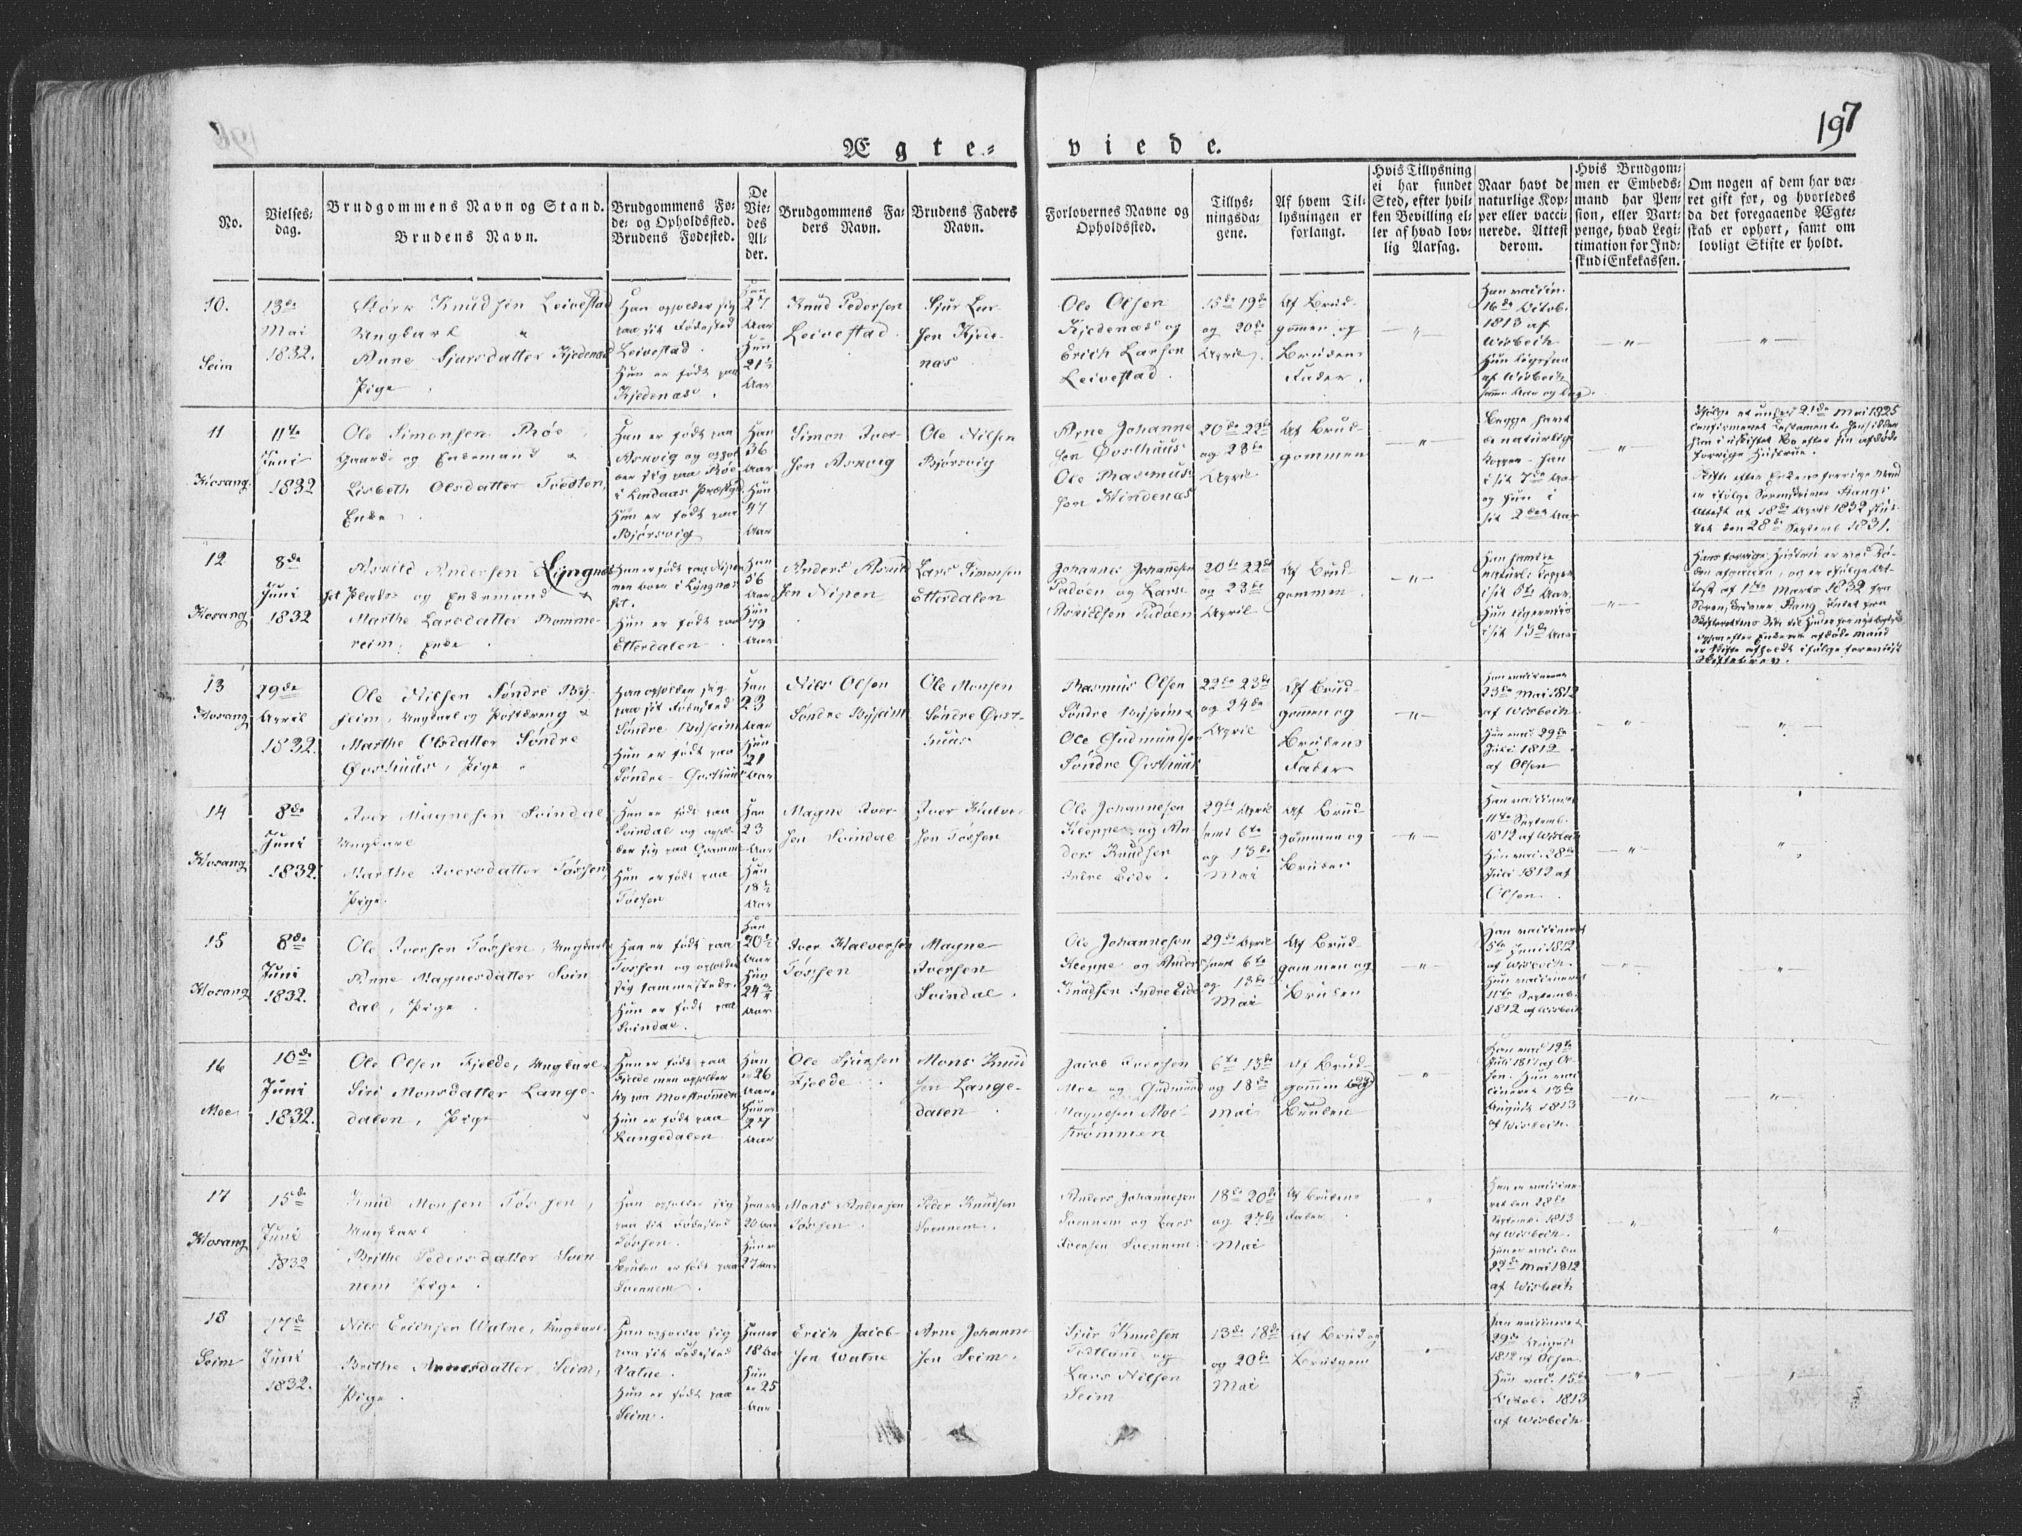 197
Ægte= viede.
No.
Vielses-
dag.
Brudgommens Navn og Stand.
Brudens Navn.
Brudgommens Fø-
de- og Opholdssted.
Brudens Fødested.
De
Vie-
des
Al-
der.
Brudgommens Fa-
ders Navn.
Brudens Faders
Navn.
Forlovernes Navne og
Opholdssted.
Tillys-
ningsda-
gene.
Af hvem Til-
lysningen er
forlangt.
Hvis Tillysning
ei har fundet
Sted, efter hvil-
ken Bevilling el-
ler af hvad lov-
lig Aarsag.
Naar havt de
naturlige Kop-
per eller vacci-
nerede. Attest
derom.
Hvis Brudgom-
men er Embeds-
mand har Pen-
sion, eller Vart-
penge, hvad Legi-
timation for Ind-
skud i Enkekassen.
Om nogen af dem har væ-
ret gift før, og hvorledes
da det foregaaende Ægte-
skab er ophørt, samt om
lovligt Skifte er holdt.
10.
Seim
13de
Mai
1832.
Størk Knudsen Leivestad
Ungkarl
Anne Sjursdatter Kjedenæs
Pige
Han opholder sig
paa sit Fødested
Leivestad.
Hun er født paa
Kjedenæs.
Han
27
Aar
Hun
21½
Aar
Knud Pedersen
Leivestad
Sjur Lar-
sen Kjede-
næs
Ole Olsen
Kjedenæs og
Erich Larsen
Leivestad
15de 19de
og 20de
April
Af Brud-
gommen og
Brudens
Fader.
Han vaccin.
16de Octob.
1813 af
Wisbech
Hun ligesaa
af Wisbech
samme Aar og Dag
11
Hosang
11te
Juni
1832
Ole Simonsen Røe
Gaardm. og Enkemand
Lisbeth Olsdatter Tvedten,
Enke
Han er født paa
Askvig og ophol-
der sig paa Røe
i Lindaas Præstgd.
Hun er født paa
Bjørsvig
Han
36
Aar
Hun
47
Aar
Simon Iver-
sen Askvig
Ole Nilsen
Bjørsvig
Arne Johanne-
sen Østhuus
Ole Rasmus-
sen Hindenæs
20de 22de
og 23de
April
Af Brud-
gommen
Begge havt
de naturlige
Kopper – han
i sit 7de Aar
og hun i
sit 2det Aar
Ifølge et under 21de Mai 1825
confirmeret Testamente
Skifte efter Enkens forrige Mand
er ifølge Sorenskriver Hangs
Attest af 18de April 1832 slut-
tet den 28de Septemb 1831.
12
Hosang
8de
Juni
1832
Askild Andersen Lyngnes-
set Plads- og Enkemand
Marthe Larsdatter Romme-
reim, Enke
Han er født paa Nipen
men boer i Lyngnes-
set.
Hun er født paa
Etterdalen
Han
56
Aar
Hun
79
Aar
Anders Askild-
sen Nipen
Lars Simonsen
Etterdalen
Johannes Johannesen
Padøen og Lars
Askildsen Padøen
20de 22de
og 23de
April
Af Brud-
gommen
Han havde
naturl: Kopper
i sit 5te Aar
Hun ligerviis
i sit 13de Aar
Hans forrige Hustru er ved Dø-
den afgaaen, og er ifølge At-
test af 1ste Marts 1832 fra
Sorenskriver Hang Intet fra
er Skifte afholdt ifølge foreviist
Skiftebrev.
13
Hosang
29de
April
1832.
Ole Nilsen Søndre By-
seim, Ungkarl og
Marthe Olsdatter Søndre
Østhuus, Pige
Han opholder sig
paa sit Fødested
Søndre Byseim
Hun er født paa
Søndre-Østhuus
Han
23
Aar
Hun
21
Aar
Nils Olsen
Søndre Byseim
Ole Monsen
Søndre Øst-
huus
Rasmus Olsen
Søndre Byseim
Ole Gudmundsen
Søndre Østhuus
22de 23de
og 24de
April
Af Brud-
gommen og
Brudens
Fader
Han vaccineret
23de Mai 1812
af Wisbech.
Hun vac. 29de
Juli 1812
af Olsen
14
Hosang
8de
Juni
1832.
Iver Magnesen Svindal
Ungkarl
Marthe Iversdatter Tøssen,
Pige.
Han er født paa
Svindal og ophol-
der sig paa
Hun er født paa
Tøssen
Han
23
Aar
Hun
18½
Aar
Magne Iver-
sen Svindal
Iver Halvor-
sen Tøssen
Ole Johannesen
Kloppe og An-
ders Knudsen
Indre Eide.
29de April
samt 6te
og 13de
Mai
Af Brud-
gommen og
Bruden
Han vaccineret
11te Septemb.
1812 af Wisbech
Hun vac. 28de
Juli 1812 af
Olsen.
15
Hosang
8de
Juni
1832.
Ole Iversen Tøssen, Ungkarl
Anne Magnesdatter Svin-
dal, Pige
Han er født paa
Tøssen og opholder
sig sammesteds.
Hun er født paa
Svindal.
Han
20½
Aar
Hun
24¾
Aar
Iver Halversen
Tøssen
Magne
Iversen
Svindal.
Ole Johannesen
Kloppe og Anders
Knudsen Indre Eide
29de April
samt 6te
og 13de
Mai
Af Brud-
gommen og
Bruden
Han vaccineret
5te Juni 1812
af Wisbech.
Hun vaccineret
11te Septemb.
1812 af Wisbech
16
Moe
10de
Juni
1832.
Ole Olsen Fjelde, Ungkarl
Siri Monsdatter Lange-
dalen, Pige
Han er født paa
Fjelde men opholder
sig paa Moestrømmen
Hun er født paa
Langedalen
Han
26
Aar
Hun
27
Aar
Ole Sjursen
Fjelde
Mons Knud-
sen Lange-
dalen
Jacob Iversen
Moe og Gudmund
Magnesen Moe-
strømmen
6te 13de
og 18de
Mai
Af Brud-
gommen og
Bruden
Han vac. 19de
Juli 1811 af Ol-
sen. Hun vac-
cineret 13de
August 1813
af Wisbech.
17
Hosang
15de
Juni
1832
Knud Monsen Tøssen,
Ungkarl
Brithe Pedersdatter Sven-
nem Pige
Han opholder sig
paa sit Fødested
Tøssen.
Bruden er født paa
Svennem
Han er
20 Aar
Hun er
27 Aar
Mons Andersen
Tøssen.
Peder Knudsen
Svennem.
Anders Johannesen
Svennem og Lars
Iversen Svennem
18de 20de
og 27de
Mai
Af Brudens
Fader
Han er vaccine-
ret den 28de
Septemb. 1813
af Wisbech.
Hun er vac. den
22de Mai 1812
af Wisbech
18
Seim
17de
Juni
1832.
Nils Erichsen Watne, Ungkarl
Brithe Arnesdatter Seim,
Pige
Han opholder sig
paa sit Fødested
Vatne.
Hun er født paa
Seim.
Han er
18 Aar
Hun
er 25
Aar
Erich Jacob-
sen Watne
Arne Johanne-
sen Seim.
Sjur Knudsen
Tvetland og
Lars Nilsen
Seim
13de 18de
og 20de
Mai
Af Brud og
Brudgom
Han vaccineret
29de August
1812 af Olsen.
Hun vac. 15de
Octob. 1813
af Wisbech